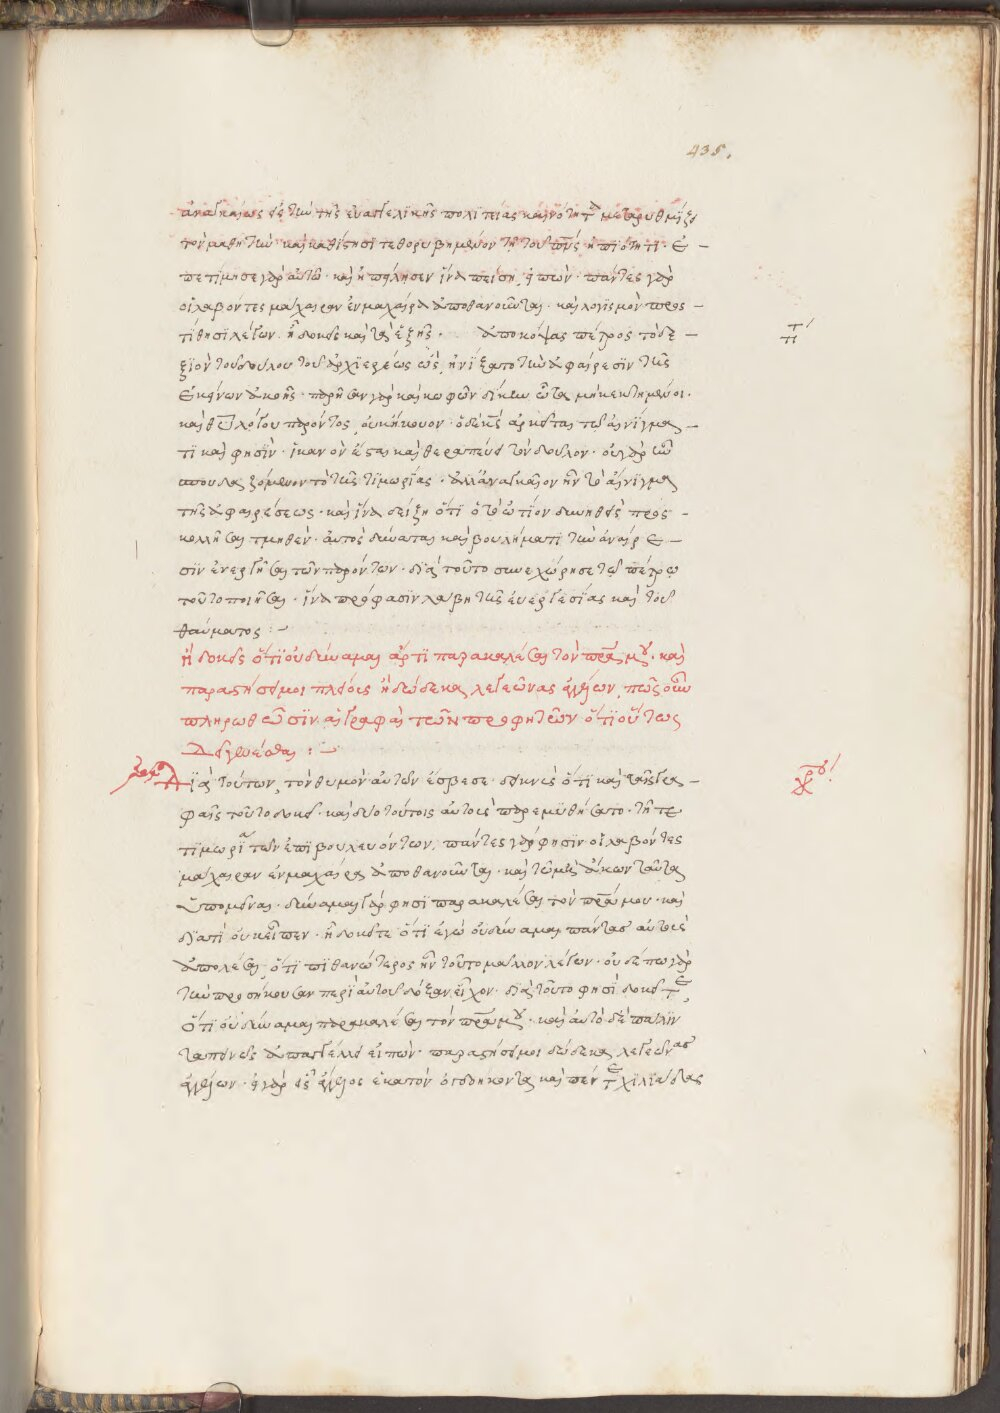 435.
ἀναγκαίως δὲ τῶ τῆς εὐαγγελϊκῆς πολϊτείας καινότητα μεταρυθμίζει
τὸν μαθητὴν καὶ καθίστησι τεθορυβημένον τῆ τοῦ πνς ἠπιότητι· ἐ –
πετίμησε γὰρ αὐτῶ· καὶ ἠπείλησεν ἵνα πείση, εἰπών· πάντες γὰρ
οἱ λαβόντες μάχαιραν ἐν μαχαίρα ἀποθανοῦνται· καὶ λογϊσμὸν προς –
τίθησϊ λέγων· ἢ δοκεῖς καὶ τὰ ἑξῆς· ἀποκόψας πέτρος τὸ δε –
ξϊὸν τοῦ δούλου τοῦ ἀρχϊερέως οὖς, ἠνίξατο τὴν ἀφαίρεσϊν τῆς
ἐκείνων ἀκοῆς· παρῆσαν γὰρ καὶ κωφῶν δίκην ὦτα μὴ κεκτημένοι·
καὶ θῦ λόγου παρόντος, οὐκ ἤκουον· ὁ δὲ κς ἀρκεῖται τῶ αἰνίγμα –
τι καὶ φησΐν· ἱκανὸν ἔσται καὶ θεραπεύει τὸν δοῦλον· οὐ γὰρ ἦν
σπουδαζόμενον τὸ τῆς τϊμωρίας· ἀλλ' ἀναγκαῖον ἦν τὸ αἴνϊγμα
τῆς ἀφαιρέσεως· καὶ ἵνα δείξη ὅτϊ ὁ τὸ ὠτίον δυνηθεὶς προς –
κολλῆσαι τμηθέν· αὐτὸς δύναται καὶ βουλήματϊ τὴν ἀναίρε –
σϊν ἐνεργῆσαι τῶν παρόντων· δϊὰ τοῦτο συνεχώρησε τῶ πέτρω
τοῦτο ποιῆσαι· ἵνα πρόφασϊν λάβη τῆς εὐεργεσίας καὶ τοῦ
θαύματος :–
ἢ δοκεῖς ὅτϊ οὐ δύναμαι ἄρτϊ παρακαλέσαι τὸν πρα μου· καὶ
παραστήσει μοι πλείους ἢ δώδεκα λεγεῶνας ἀγγέλων, πῶς οὖν
πληρωθῶσϊν αἱ γραφαὶ τῶν προφητῶν ὅτϊ οὕτως
δεῖ γενέσθαι :–
Δϊὰ τούτων, τὸν θυμὸν αὐτῶν ἔσβεσε· δεικνὺς ὅτϊ καὶ ταῖς γρα –
φαῖς τοῦτο δοκεῖ· καὶ δυσὶ τούτοις αὐτοὺς παρεμυθήσατο· τῆ τε
τιμωρία τῶν ἐπϊβουλευόντων, πάντες γάρ φησϊν οἱ λαβόντες
μάχαιραν ἐν μαχαίρα ἀποθανοῦνται· καὶ τῶ μὴ ἄκων ταῦτα
ὑπομεῖναι· δύναμαι γάρ φησϊ παρακαλέσαι τὸν πρα μου· καὶ
δϊατί οὐκ εἶπεν· ἢ δοκεῖτε ὅτϊ ἐγὼ οὐ δύναμαι πάντας αὐτοὺς
ἀπολέσαι, ὅτϊ πϊθανώτερος ἦν τοῦτο μᾶλλον λέγων· οὐδέπω γὰρ
τὴν προσήκουσαν περὶ αὐτοῦ δόξαν εἶχον· δϊὰ τοῦτο φησϊ δοκεῖτε,
ὅτϊ οὐ δύναμαι παρακαλέσαι τὸν πρα μου· καὶ αὐτὸ δὲ πάλϊν
ταπεινῶς ἀπαγγέλλει εἰπών· παραστήσει μοι δώδεκα λεγεῶνας
ἀγγέλων· εἰ γὰρ εἷς ἄγγελος ἑκατὸν ὀγδοήκοντα καὶ πέντε χϊλϊάδας